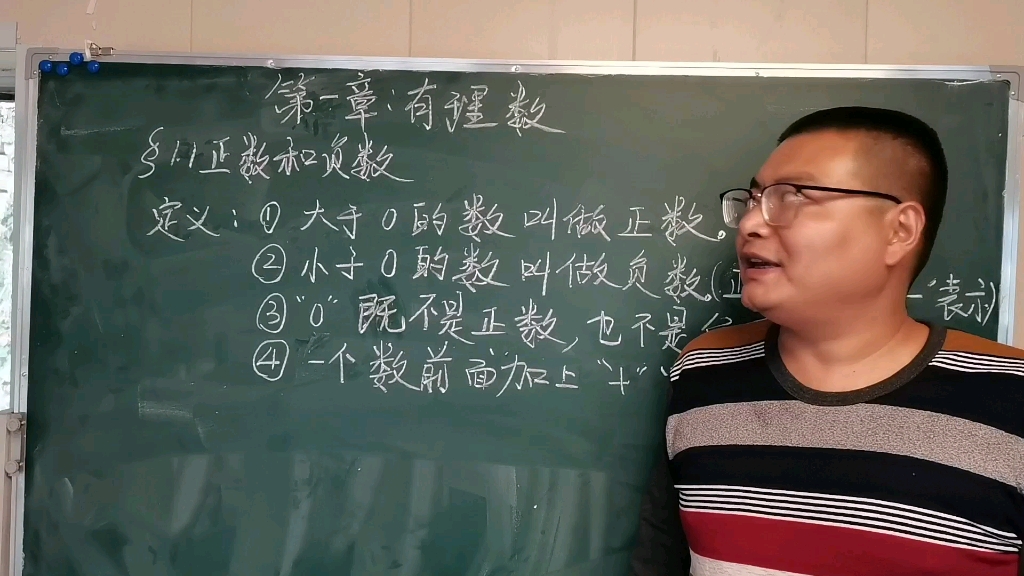 第一章:有理数
§1.1正数和负数
定义:① 大于0的数叫做正数。
② 小于0的数叫做负数。( "一"表示)
③ "0" 既不是正数,也不是
④ 一个数前面加上"+"